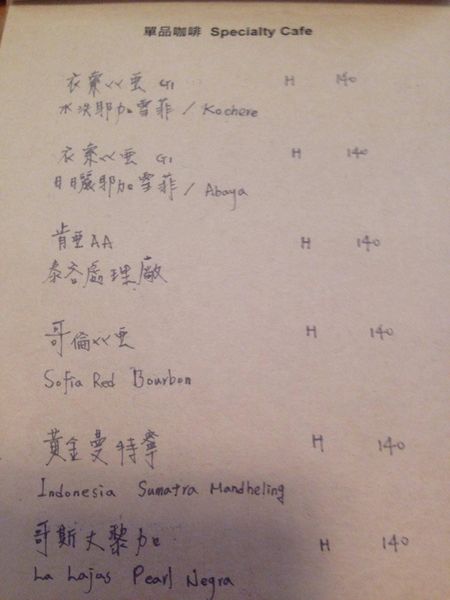 單品咖啡 Specialty Cafe
衣索ㄍ亞 G1 H 140
水洗耶加雪菲 / Kochere
衣索ㄍ亞 G1 H 140
日曬耶加雪菲 / Abaya
肯亞AA H 140
泰谷處理廠
哥倫ㄍ亞 H 140
Sofia Red Bourbon
黃金曼特寧 H 140
Indonesia Sumatra Mandheling
哥斯大黎加 H 140
La Lajas Pearl Negra